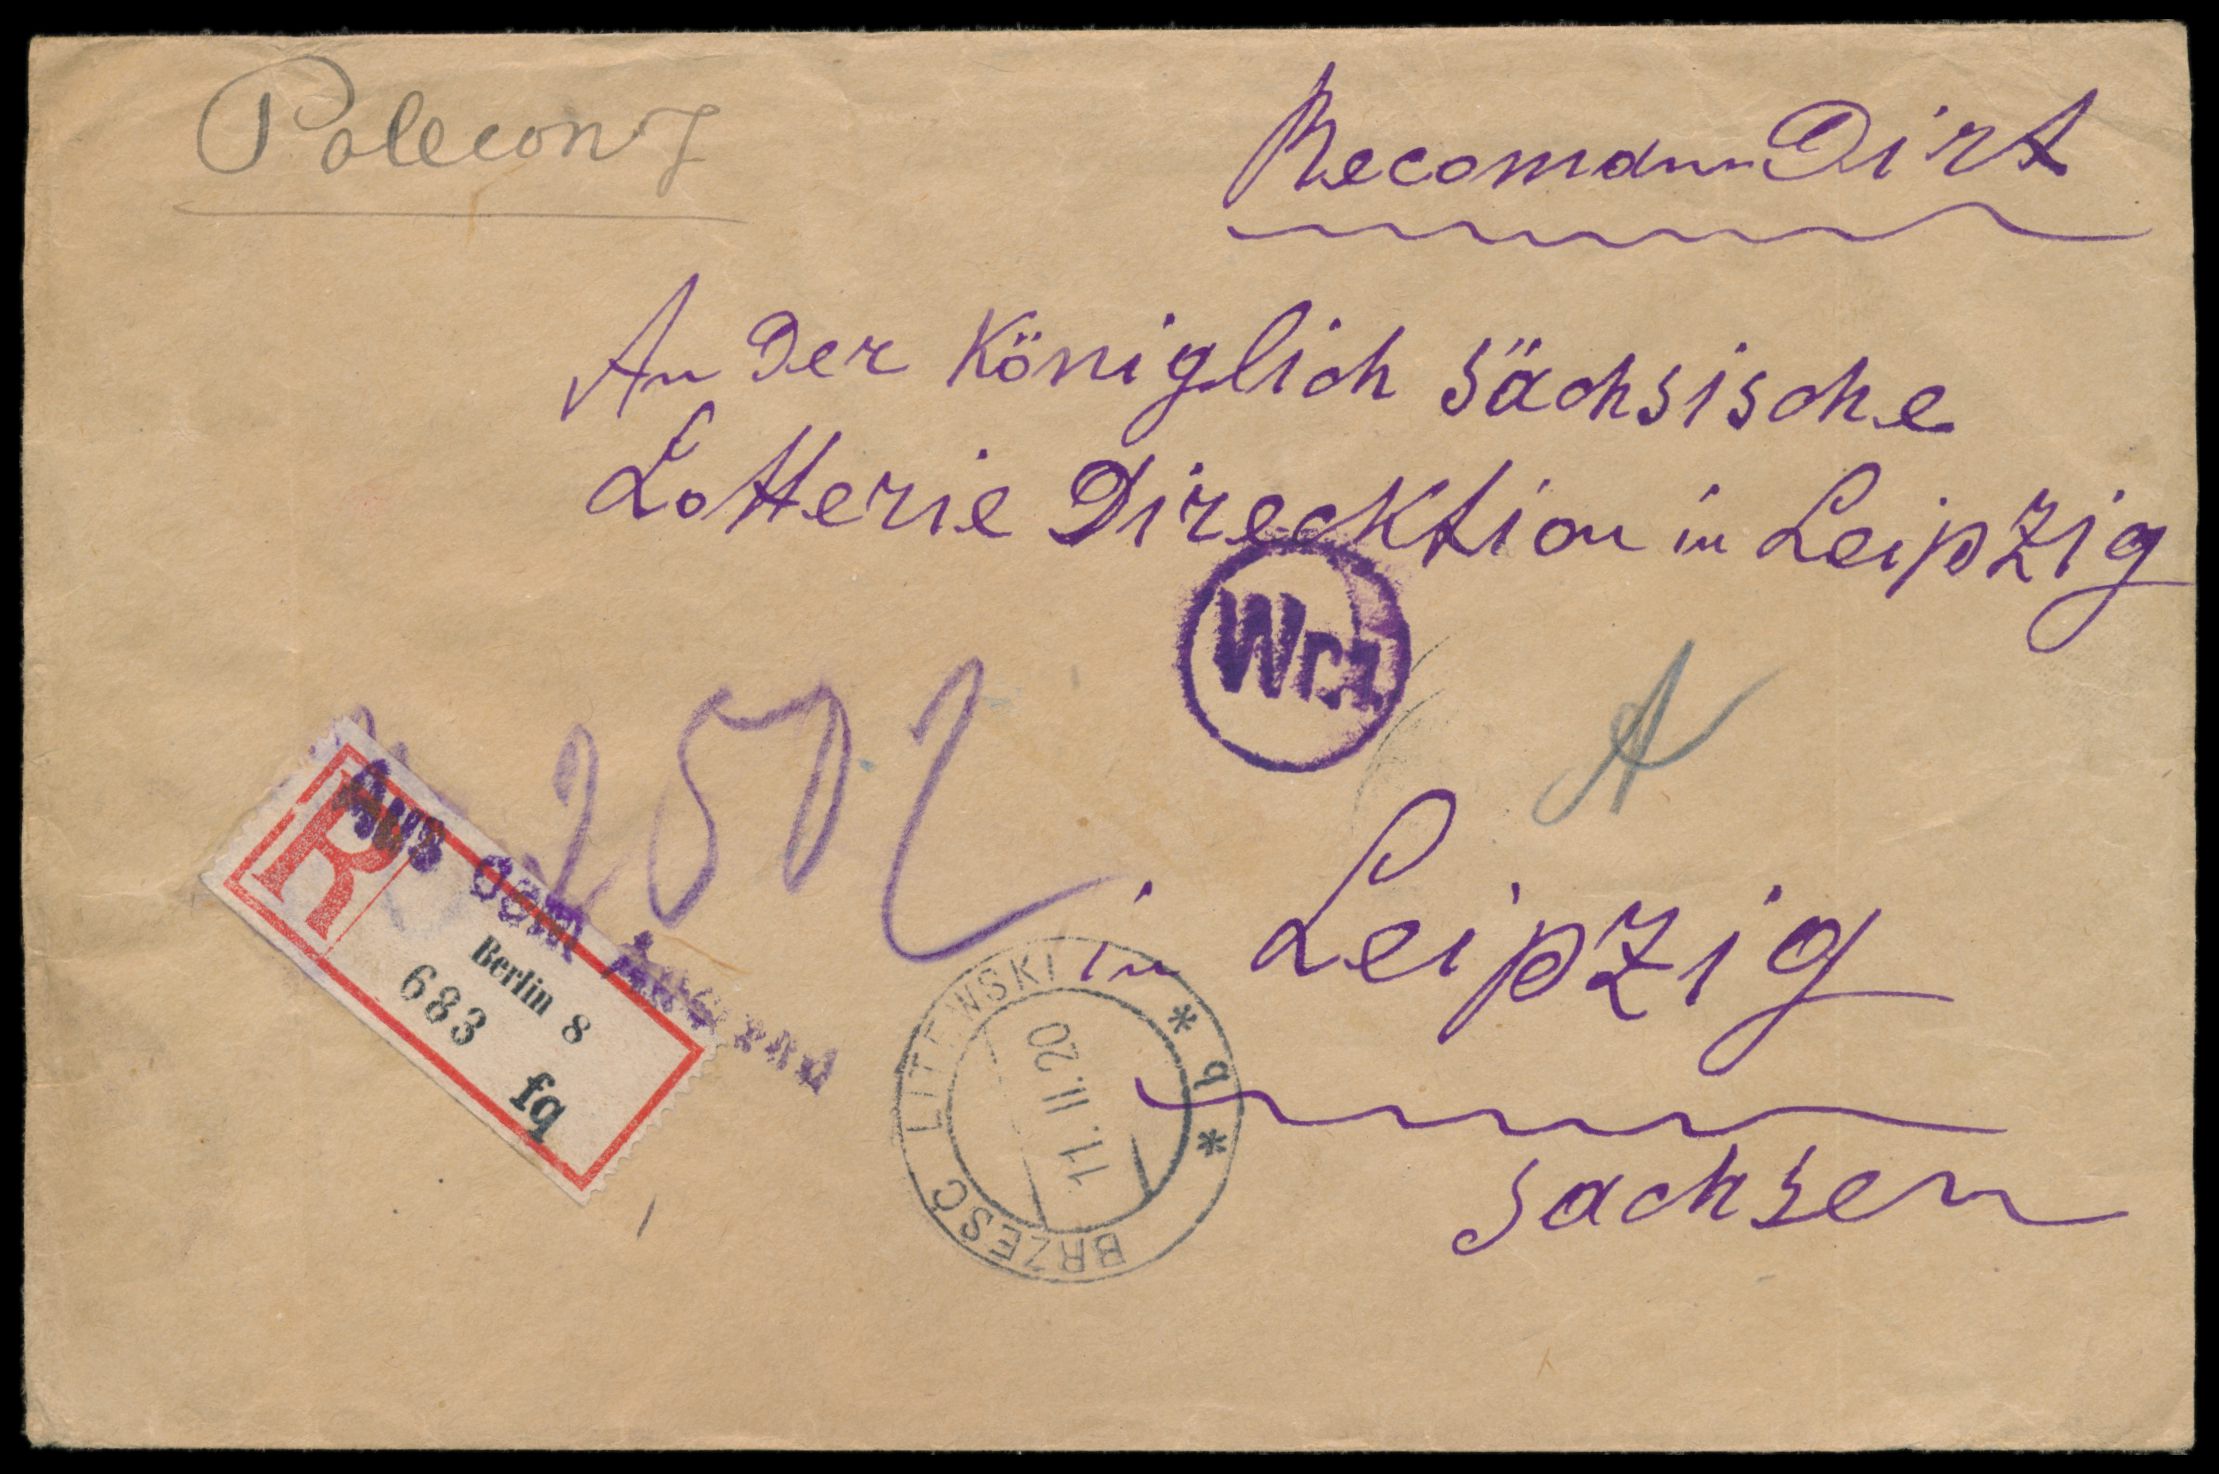 Polecony
RecomannDirt
An Der Königlich Sächsische
Lotterie Direcktion in Leipzig
Wrz
A
2502
R
Aus dem Ausland
Berlin 8
683
fq
in Leipzig
Sachsen
BRZEŚĆ LITEWSKI
* b *
11.II.20